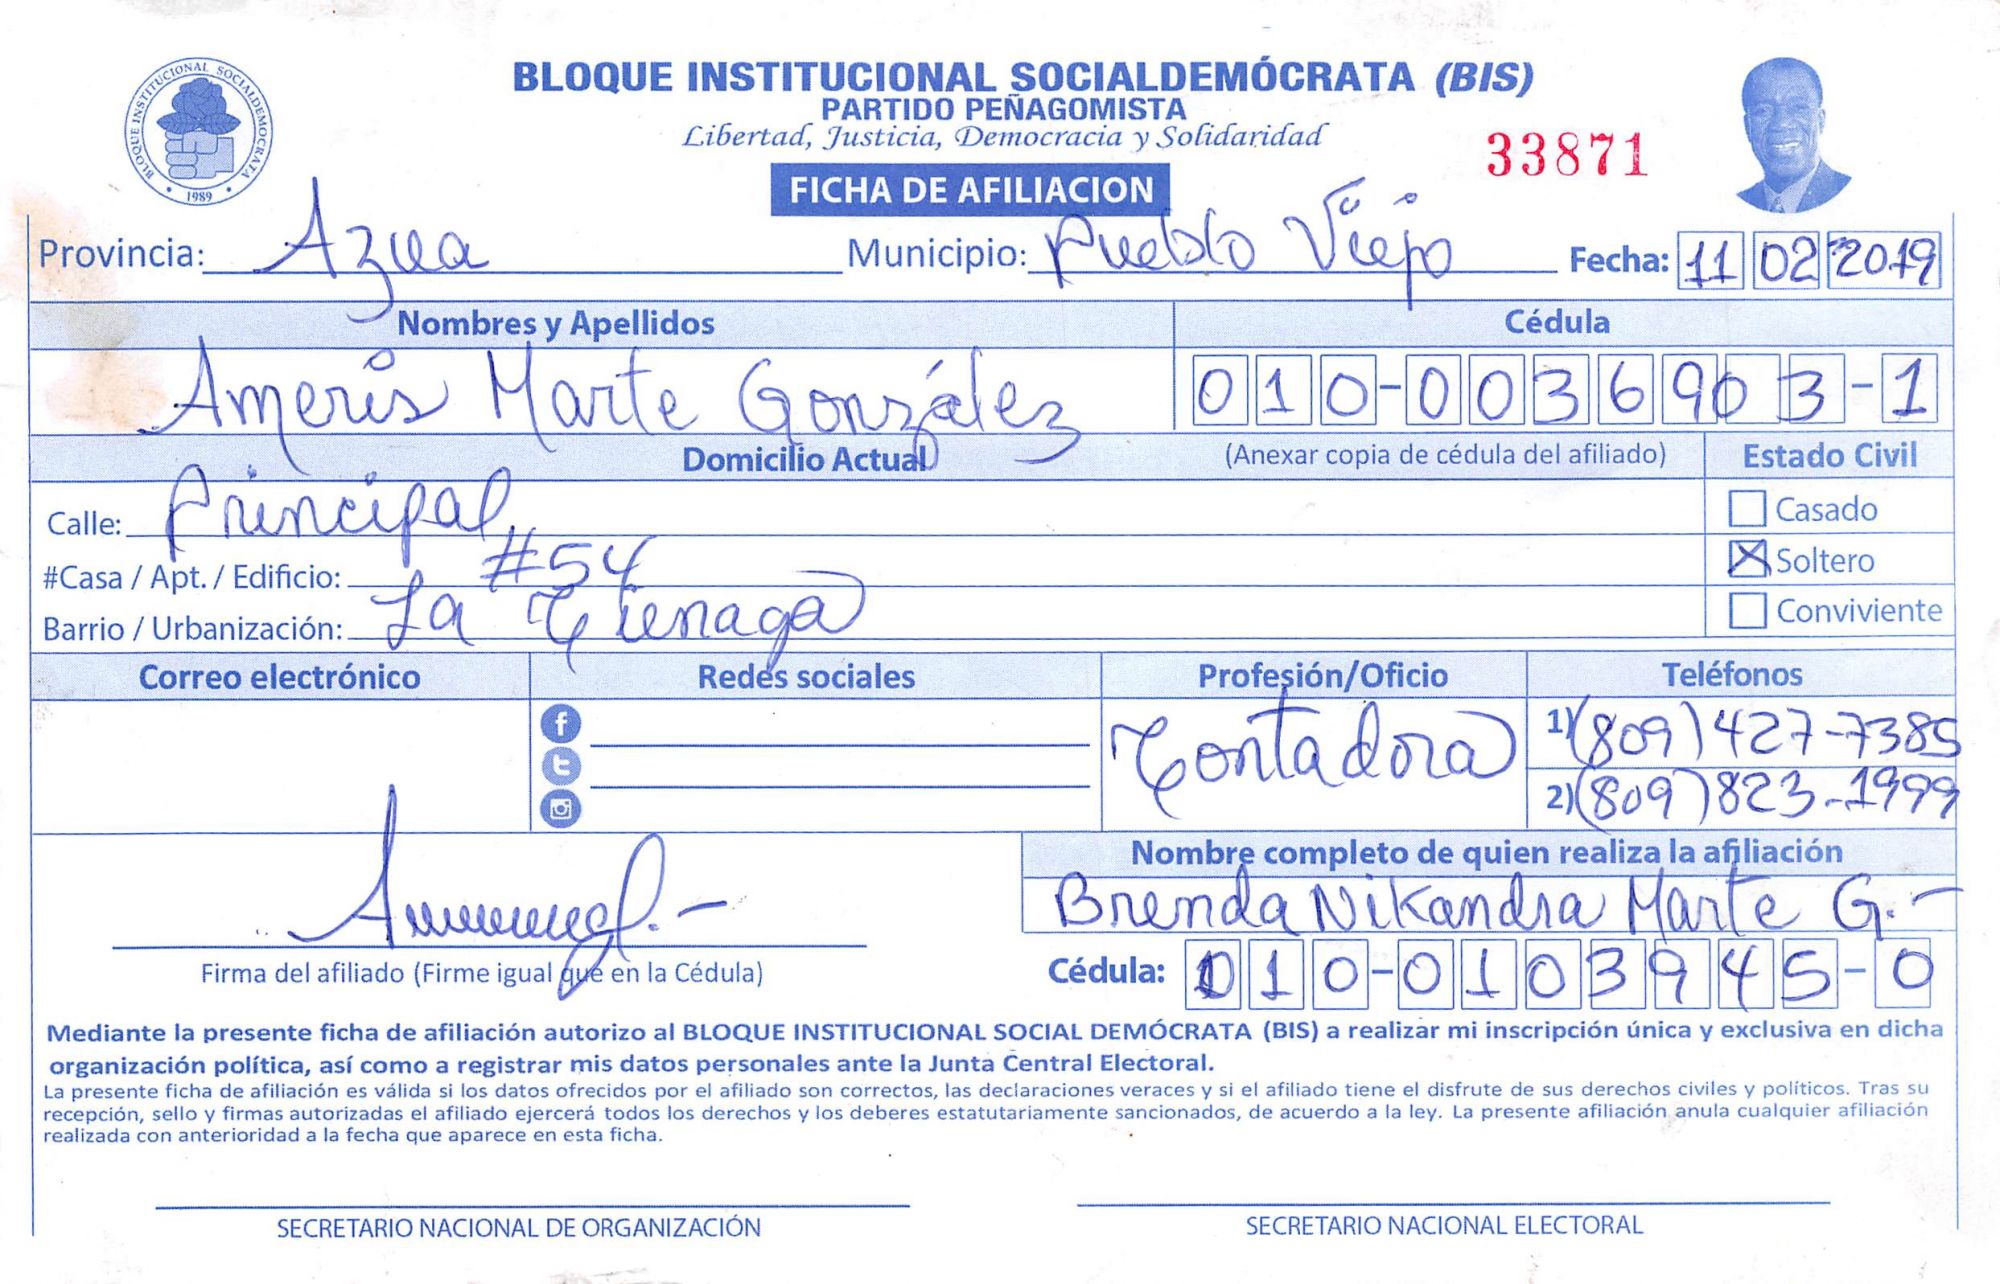 BLOQUE INSTITUCIONAL SOCIALDEMOCRATA
1989
BLOQUE INSTITUCIONAL SOCIALDEMÓCRATA (BIS)
PARTIDO PEÑAGOMISTA
Libertad, Justicia, Democracia y Solidaridad
33871
FICHA DE AFILIACION
Provincia: Azua Municipio: Pueblo Viejo Fecha: 11 02 2019
Nombres y Apellidos Cédula
Ameris Marte González 010-0036903-1
Domicilio Actual (Anexar copia de cédula del afiliado) Estado Civil
Calle: Principal Casado
#Casa / Apt. / Edificio: #54 Soltero
Barrio / Urbanización: La Cienaga Conviviente
Correo electrónico Redes sociales Profesión/Oficio Teléfonos
Contadora 1) (809) 427-7385
2) (809) 823-1999
Nombre completo de quien realiza la afiliación
Brenda Nikandra Marte G.-
Firma del afiliado (Firme igual que en la Cédula) Cédula: 010-0103945-0
Mediante la presente ficha de afiliación autorizo al BLOQUE INSTITUCIONAL SOCIAL DEMÓCRATA (BIS) a realizar mi inscripción única y exclusiva en dicha
organización política, así como a registrar mis datos personales ante la Junta Central Electoral.
La presente ficha de afiliación es válida si los datos ofrecidos por el afiliado son correctos, las declaraciones veraces y si el afiliado tiene el disfrute de sus derechos civiles y políticos. Tras su
recepción, sello y firmas autorizadas el afiliado ejercerá todos los derechos y los deberes estatutariamente sancionados, de acuerdo a la ley. La presente afiliación anula cualquier afiliación
realizada con anterioridad a la fecha que aparece en esta ficha.
SECRETARIO NACIONAL DE ORGANIZACIÓN SECRETARIO NACIONAL ELECTORAL